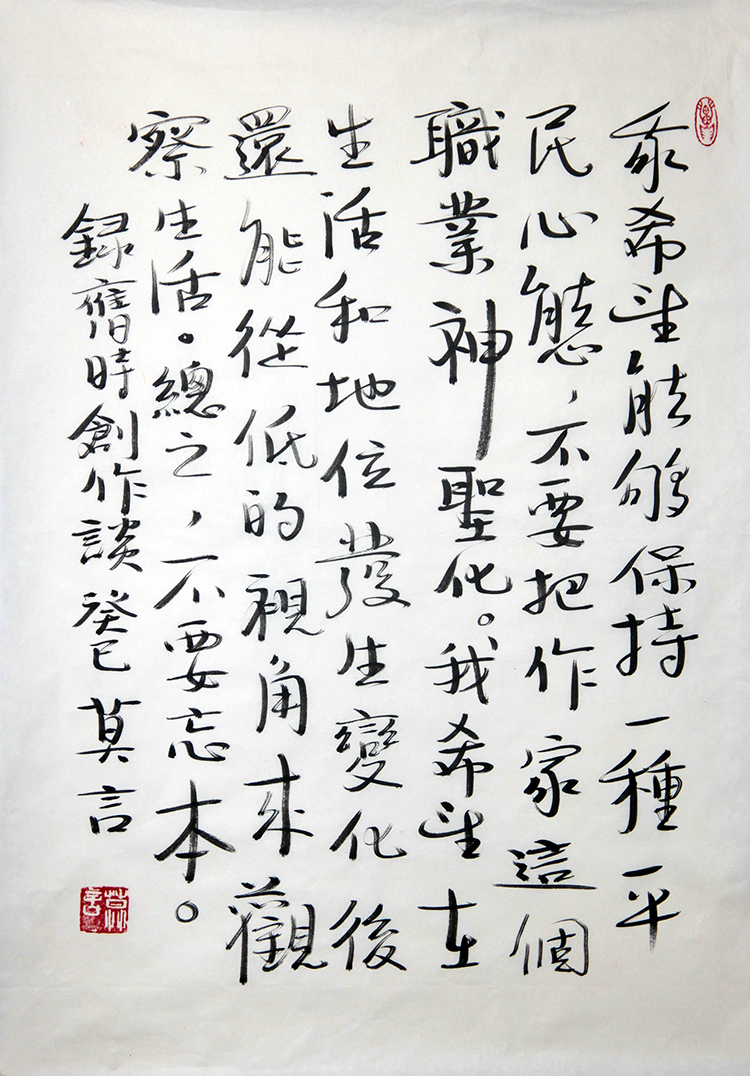 我希望能够保持一種平
民心態,不要把作家這個
職業神聖化。我希望在
生活和地位發生變化後
還能從低的視角來觀
察生活。總之,不要忘本。
録舊時創作談 癸巳 莫言
莫言